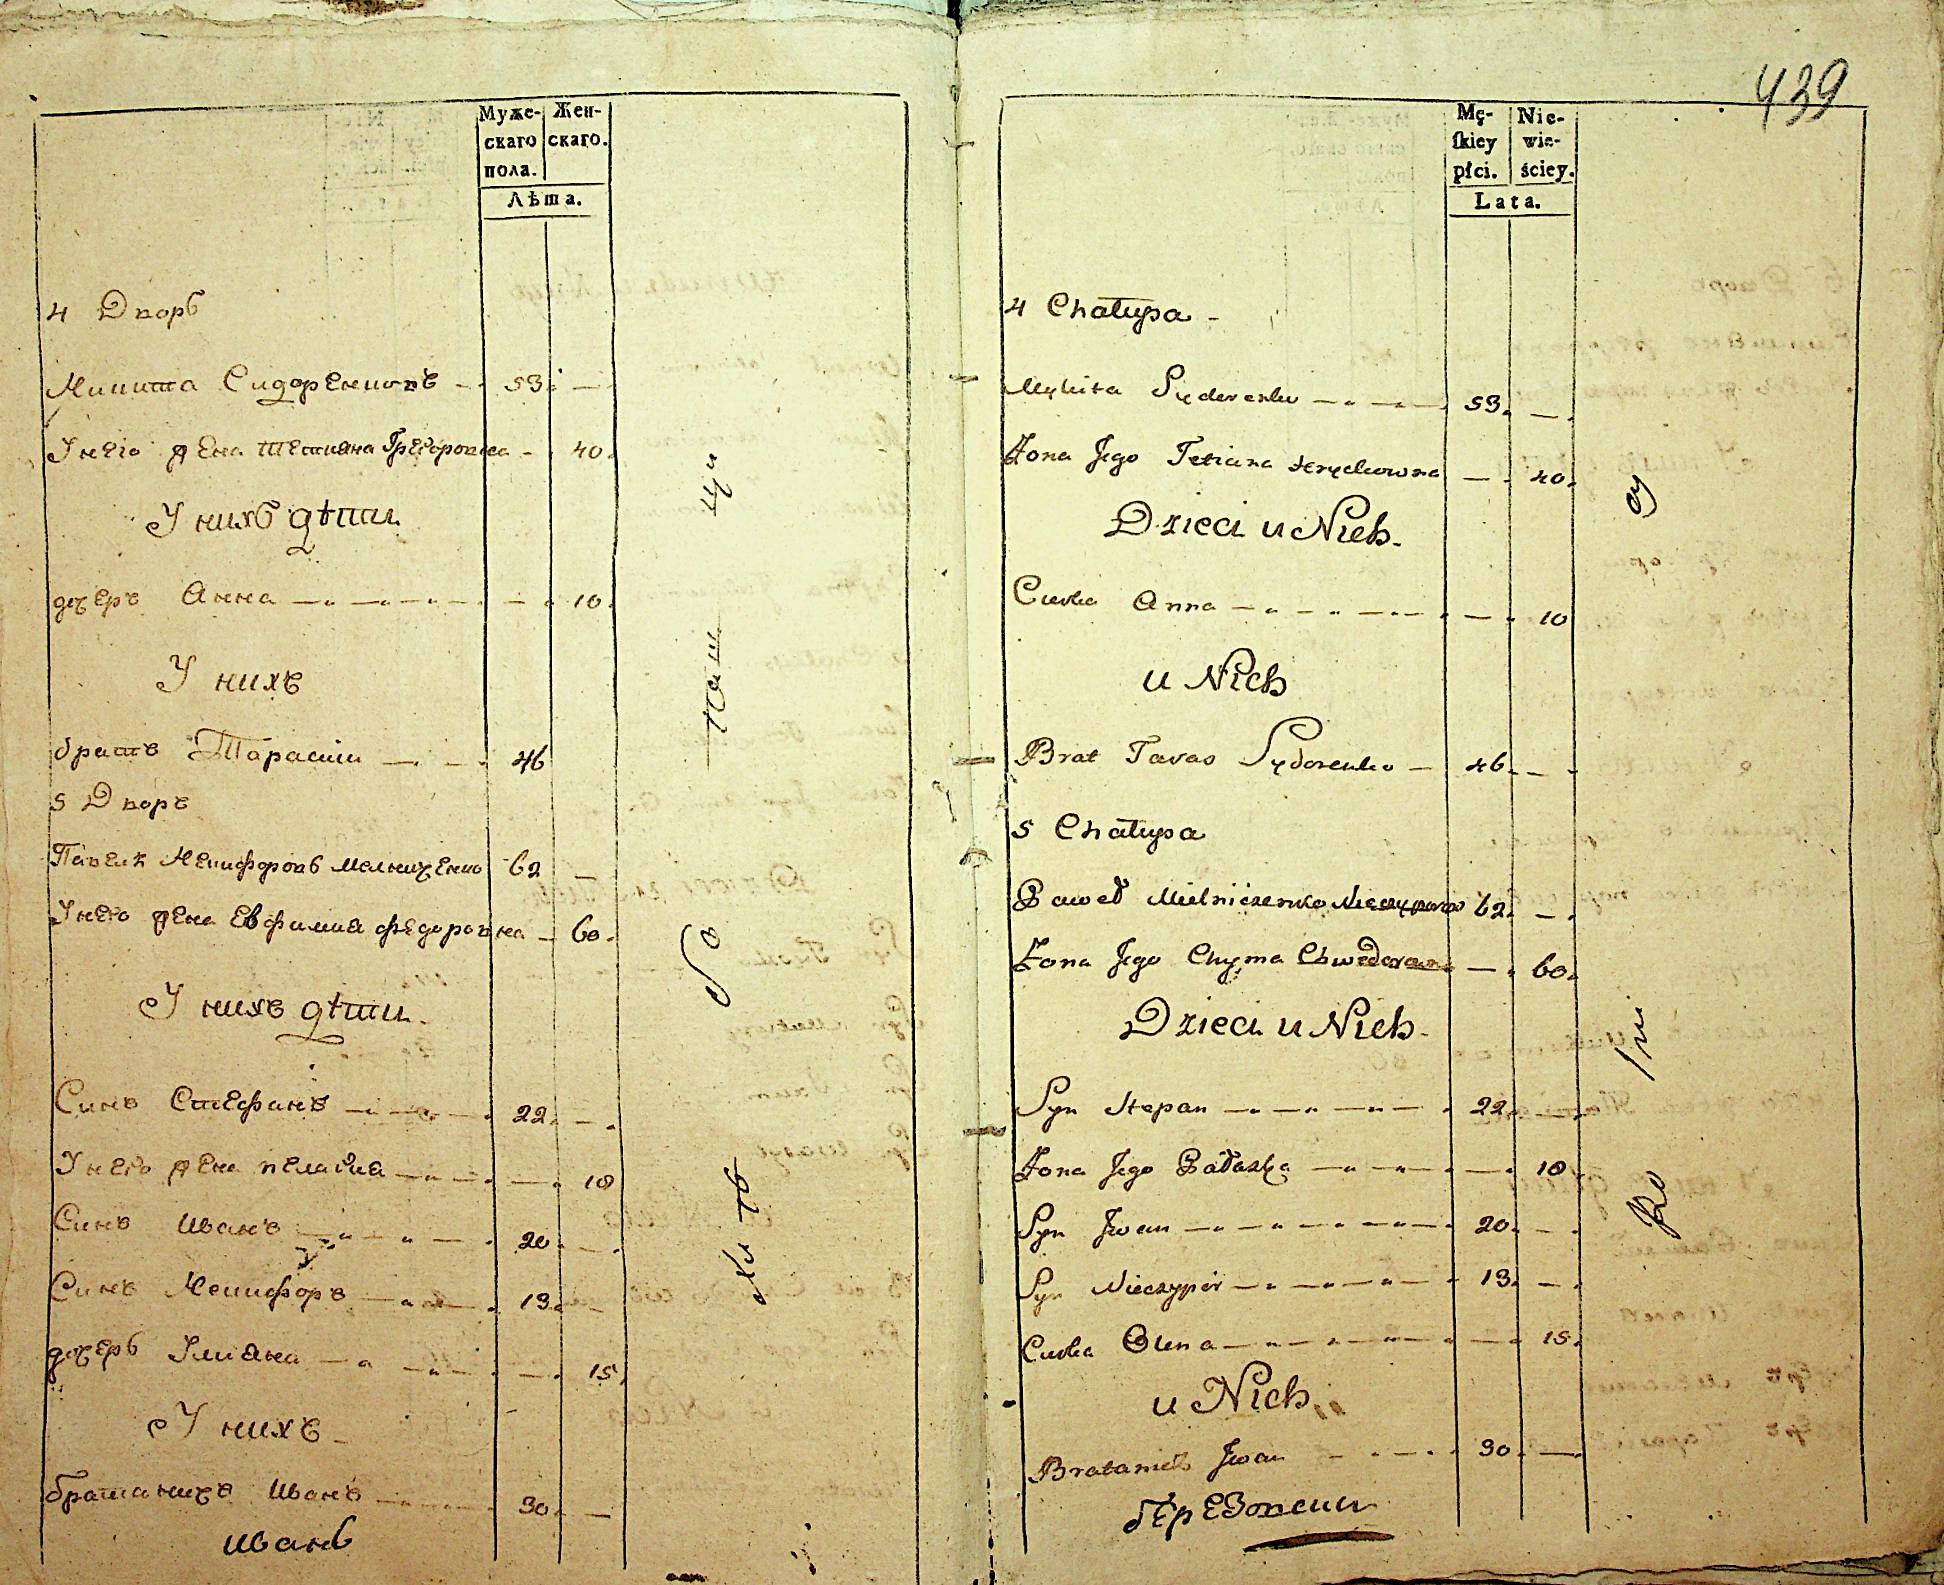 Муже-
скаго
пола.
Жен-
скаго.
Лѣта.
4 Дворъ
Микита Сидоренковъ 53
У него жена Тетияна Григоровна 40
У нихъ дѣти
дочеръ Анна 10
У нихъ
братъ Тарасии 46
5 Дворъ
Павелъ Никифоровъ Мелниченко 62
У него жена Евфимия Федоровна 60
У нихъ дѣти
Синъ Стефанъ 22
У него жена Пелагия 18
Синъ Иванъ 20
Синъ Никифоръ 13
дочеръ Улияна 15
У нихъ
братаничъ Иванъ 30
Иванъ
439
Mę-
skiey
płci.
Nie-
wie-
ściey.
Lata.
4 Chałupa
Mykita Sydorenko 53
Żona Jego Tetiana Hryckowna 40
Dzieci u Nich
Curka Anna 10
u Nich
Brat Taras Sydorenko 46
5 Chałupa
Paweł Mielniczenko 62
Żona Jego Chyma Chwedorowna 60
Dzieci u Nich
Syn Stepan 22
Żona Jego Pałaszka 18
Syn Jwan 20
Syn Nieczypór 13
Curka Olena 15
u Nich
Bratanich Jwan 30
березовски